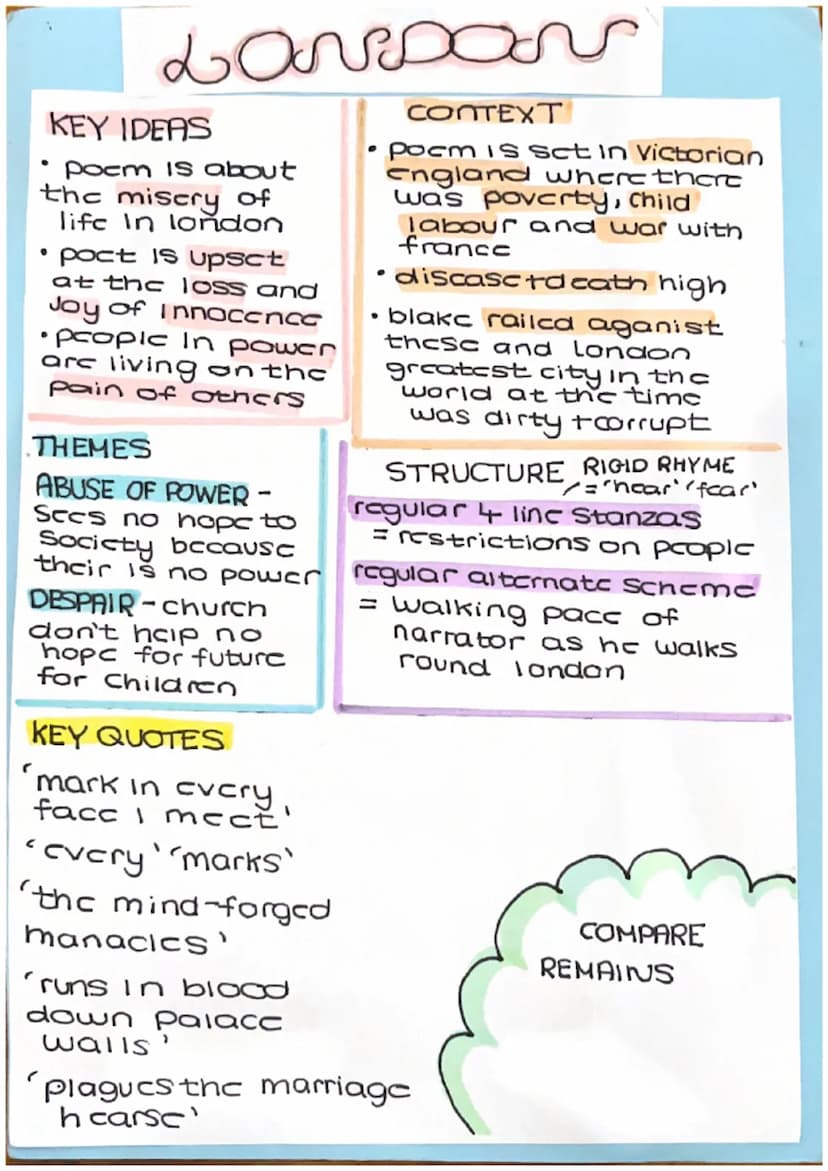 LONDON
KEY IDEAS
• poem is about
the misery of
life in london
• poet is upset
at the loss and
Joy of innocence
• people in power
are living on the
pain of others
CONTEXT
• poem is set in Victorian
England where there
was poverty, child
labour and war with
france
• disease + death high
• blake railed aganist
these and London
greatest city in the
world at the time
was dirty + corrupt
THEMES
ABUSE OF POWER -
sees no hope to
society because
their is no power
DESPAIR - church
don't help no
hope for future
for children
STRUCTURE / RIGID RHYME
= 'hear' 'fear'
regular 4 line stanzas
= restrictions on people
regular alternate scheme
= walking pace of
narrator as he walks
round london
KEY QUOTES
'mark in every
face i meet'
'every' 'marks'
'the mind-forged
manacles'
'runs in blood
down palace
walls'
'plagues the marriage
hearse'
COMPARE
REMAINS